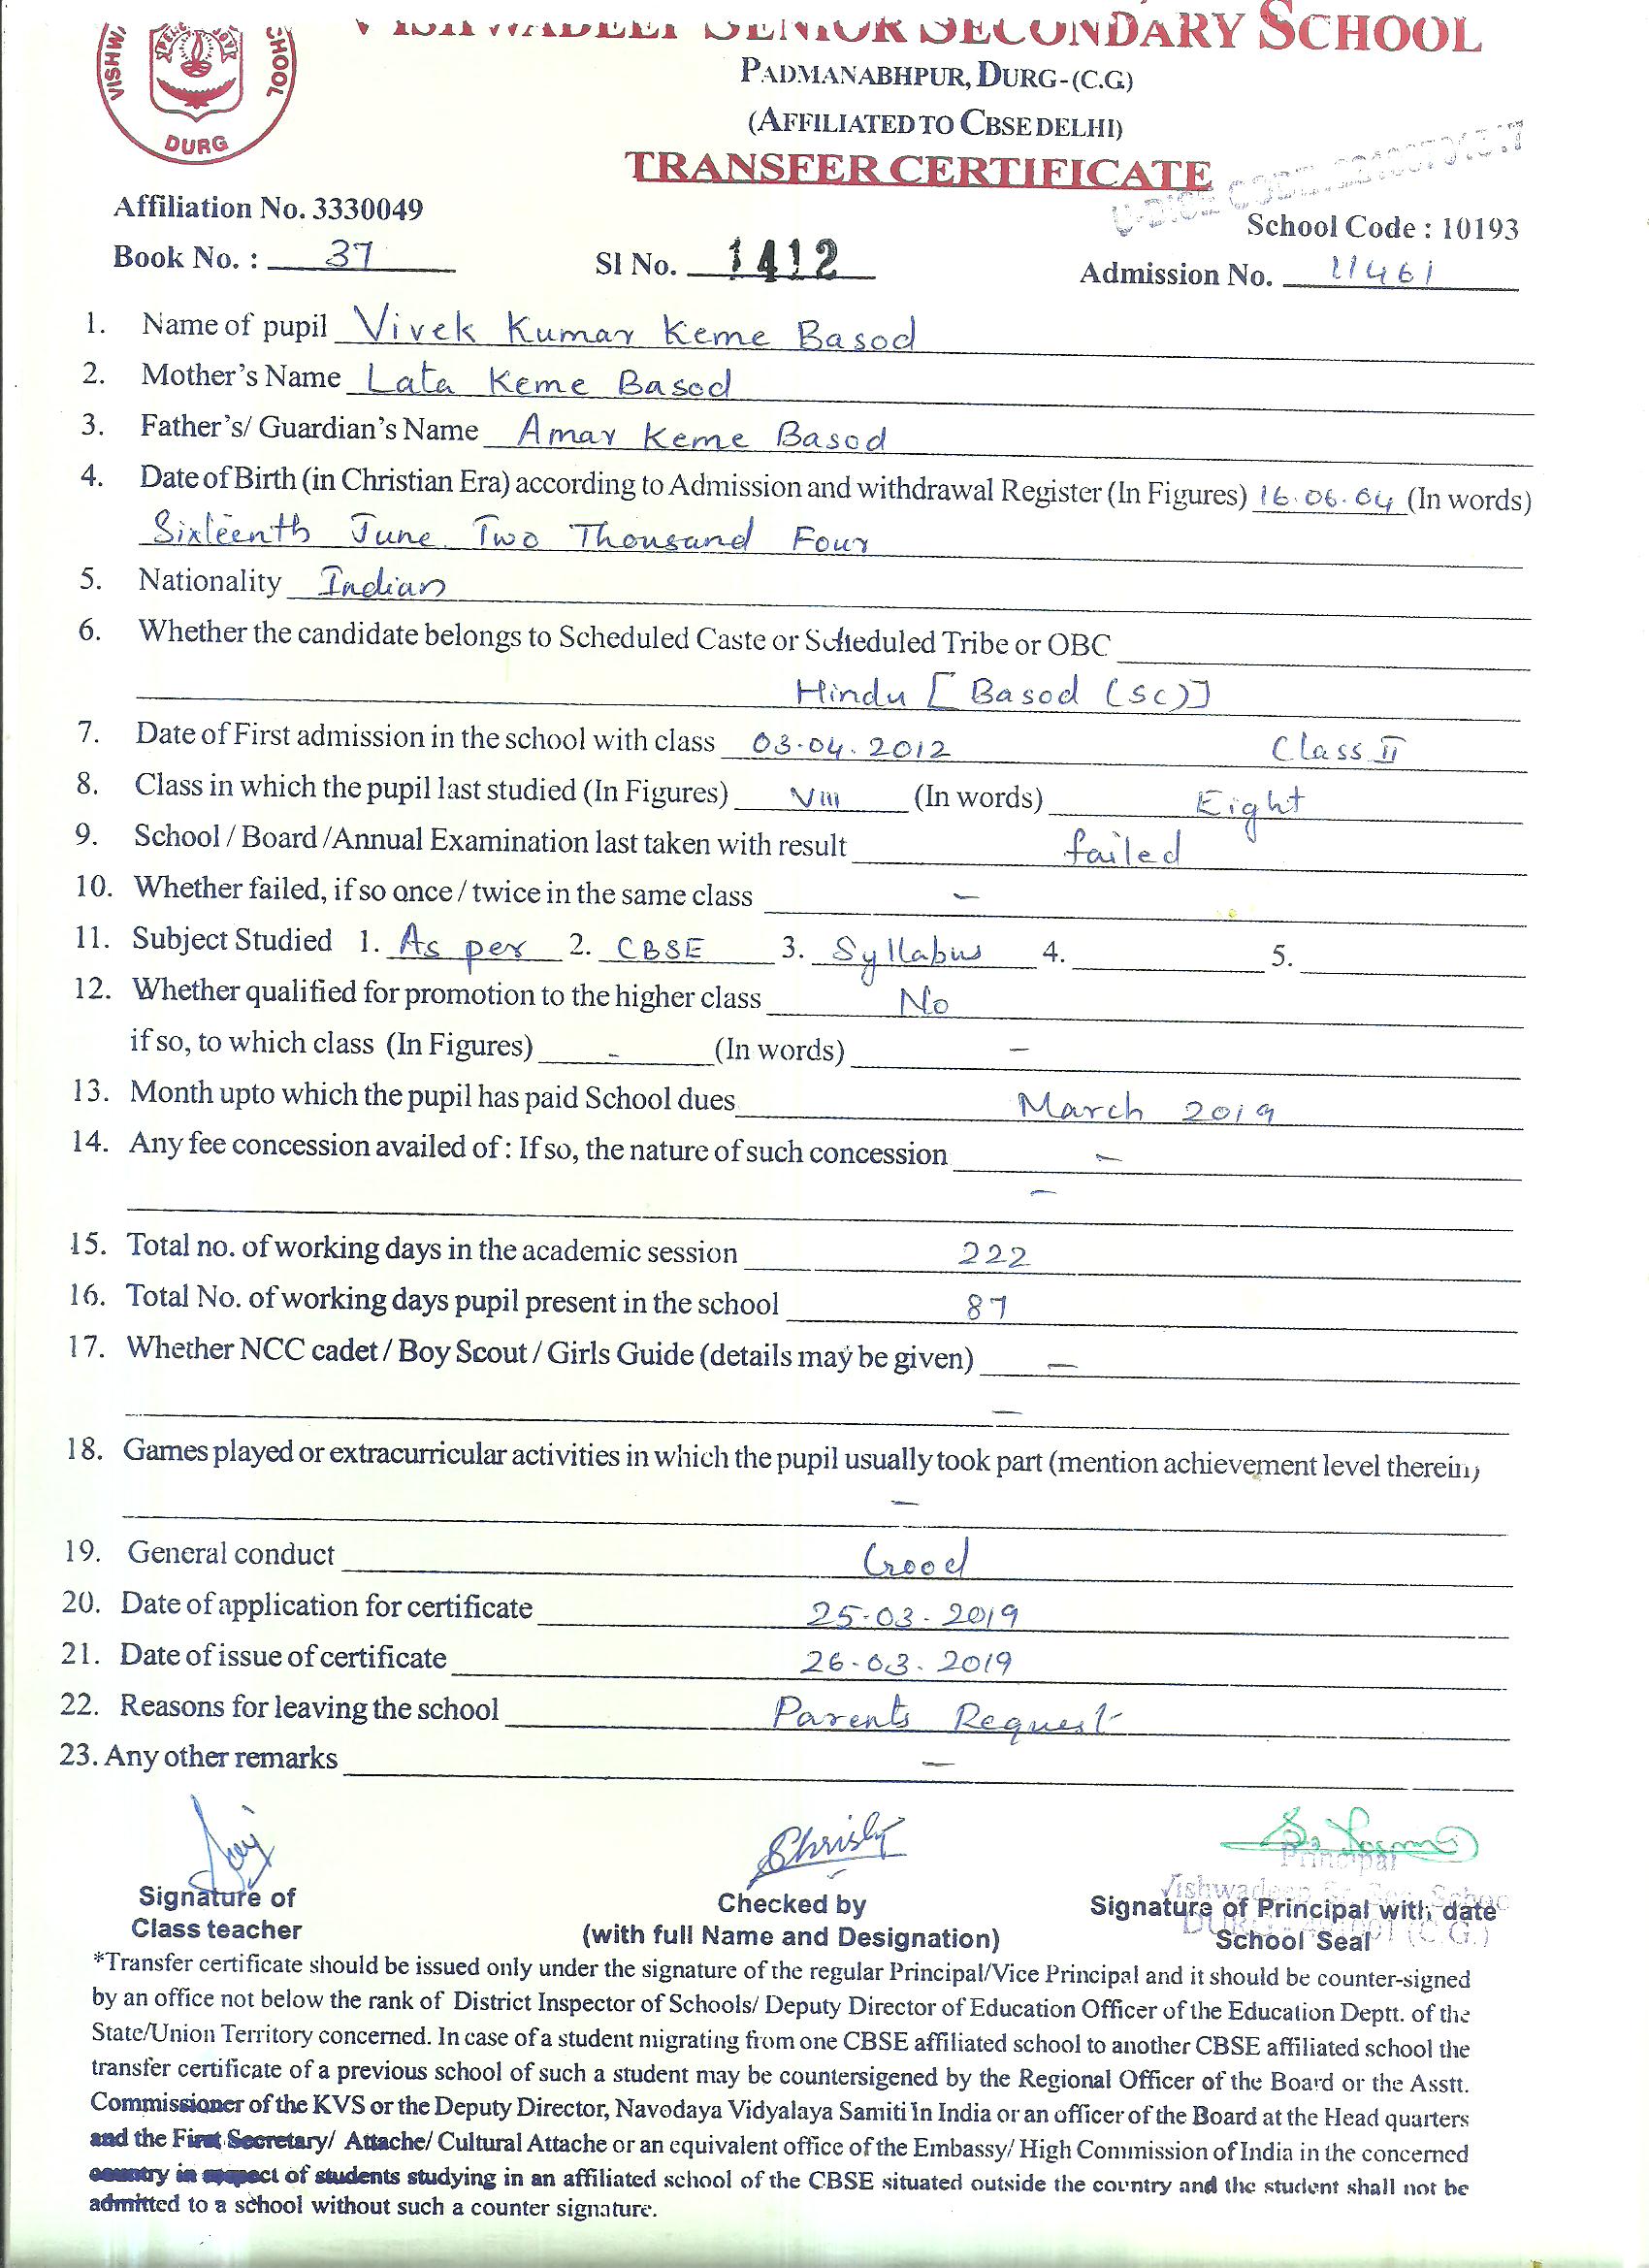 SENIOR SECONDARY SCHOOL
PADMANABHPUR, DURG-(C.G.)
(AFFILIATED TO CBSE DELHI)
DURG
TRANSFER CERTIFICATE
Affiliation No. 3330049
School Code : 10193
Book No. : 37 Sl No. 1412 Admission No. 11461
1. Name of pupil Vivek Kumar Keme Basod
2. Mother's Name Lata Keme Basod
3. Father's/ Guardian's Name Amar Keme Basod
4. Date of Birth (in Christian Era) according to Admission and withdrawal Register (In Figures) 16.06.04 (In words)
Sixteenth June Two Thousand Four
5. Nationality Indian
6. Whether the candidate belongs to Scheduled Caste or Scheduled Tribe or OBC
Hindu [Basod (SC)]
7. Date of First admission in the school with class 03.04.2012 Class II
8. Class in which the pupil last studied (In Figures) VIII (In words) Eight
9. School / Board /Annual Examination last taken with result failed
10. Whether failed, if so once / twice in the same class –
11. Subject Studied 1. As per 2. CBSE 3. Syllabus 4. 5.
12. Whether qualified for promotion to the higher class No
if so, to which class (In Figures) - (In words) –
13. Month upto which the pupil has paid School dues March 2019
14. Any fee concession availed of : If so, the nature of such concession –
–
15. Total no. of working days in the academic session 222
16. Total No. of working days pupil present in the school 87
17. Whether NCC cadet / Boy Scout / Girls Guide (details may be given) –
–
18. Games played or extracurricular activities in which the pupil usually took part (mention achievement level therein)
–
19. General conduct Good
20. Date of application for certificate 25-03-2019
21. Date of issue of certificate 26-03-2019
22. Reasons for leaving the school Parents Request
23. Any other remarks –
Principal
Signature of Checked by Signature of Principal with date
Class teacher (with full Name and Designation) School Seal
*Transfer certificate should be issued only under the signature of the regular Principal/Vice Principal and it should be counter-signed
by an office not below the rank of District Inspector of Schools/ Deputy Director of Education Officer of the Education Deptt. of the
State/Union Territory concerned. In case of a student migrating from one CBSE affiliated school to another CBSE affiliated school the
transfer certificate of a previous school of such a student may be countersigened by the Regional Officer of the Board or the Asstt.
Commissioner of the KVS or the Deputy Director, Navodaya Vidyalaya Samiti in India or an officer of the Board at the Head quarters
and the First Secretary/ Attache/ Cultural Attache or an equivalent office of the Embassy/ High Commission of India in the concerned
country in respect of students studying in an affiliated school of the CBSE situated outside the country and the student shall not be
admitted to a school without such a counter signature.